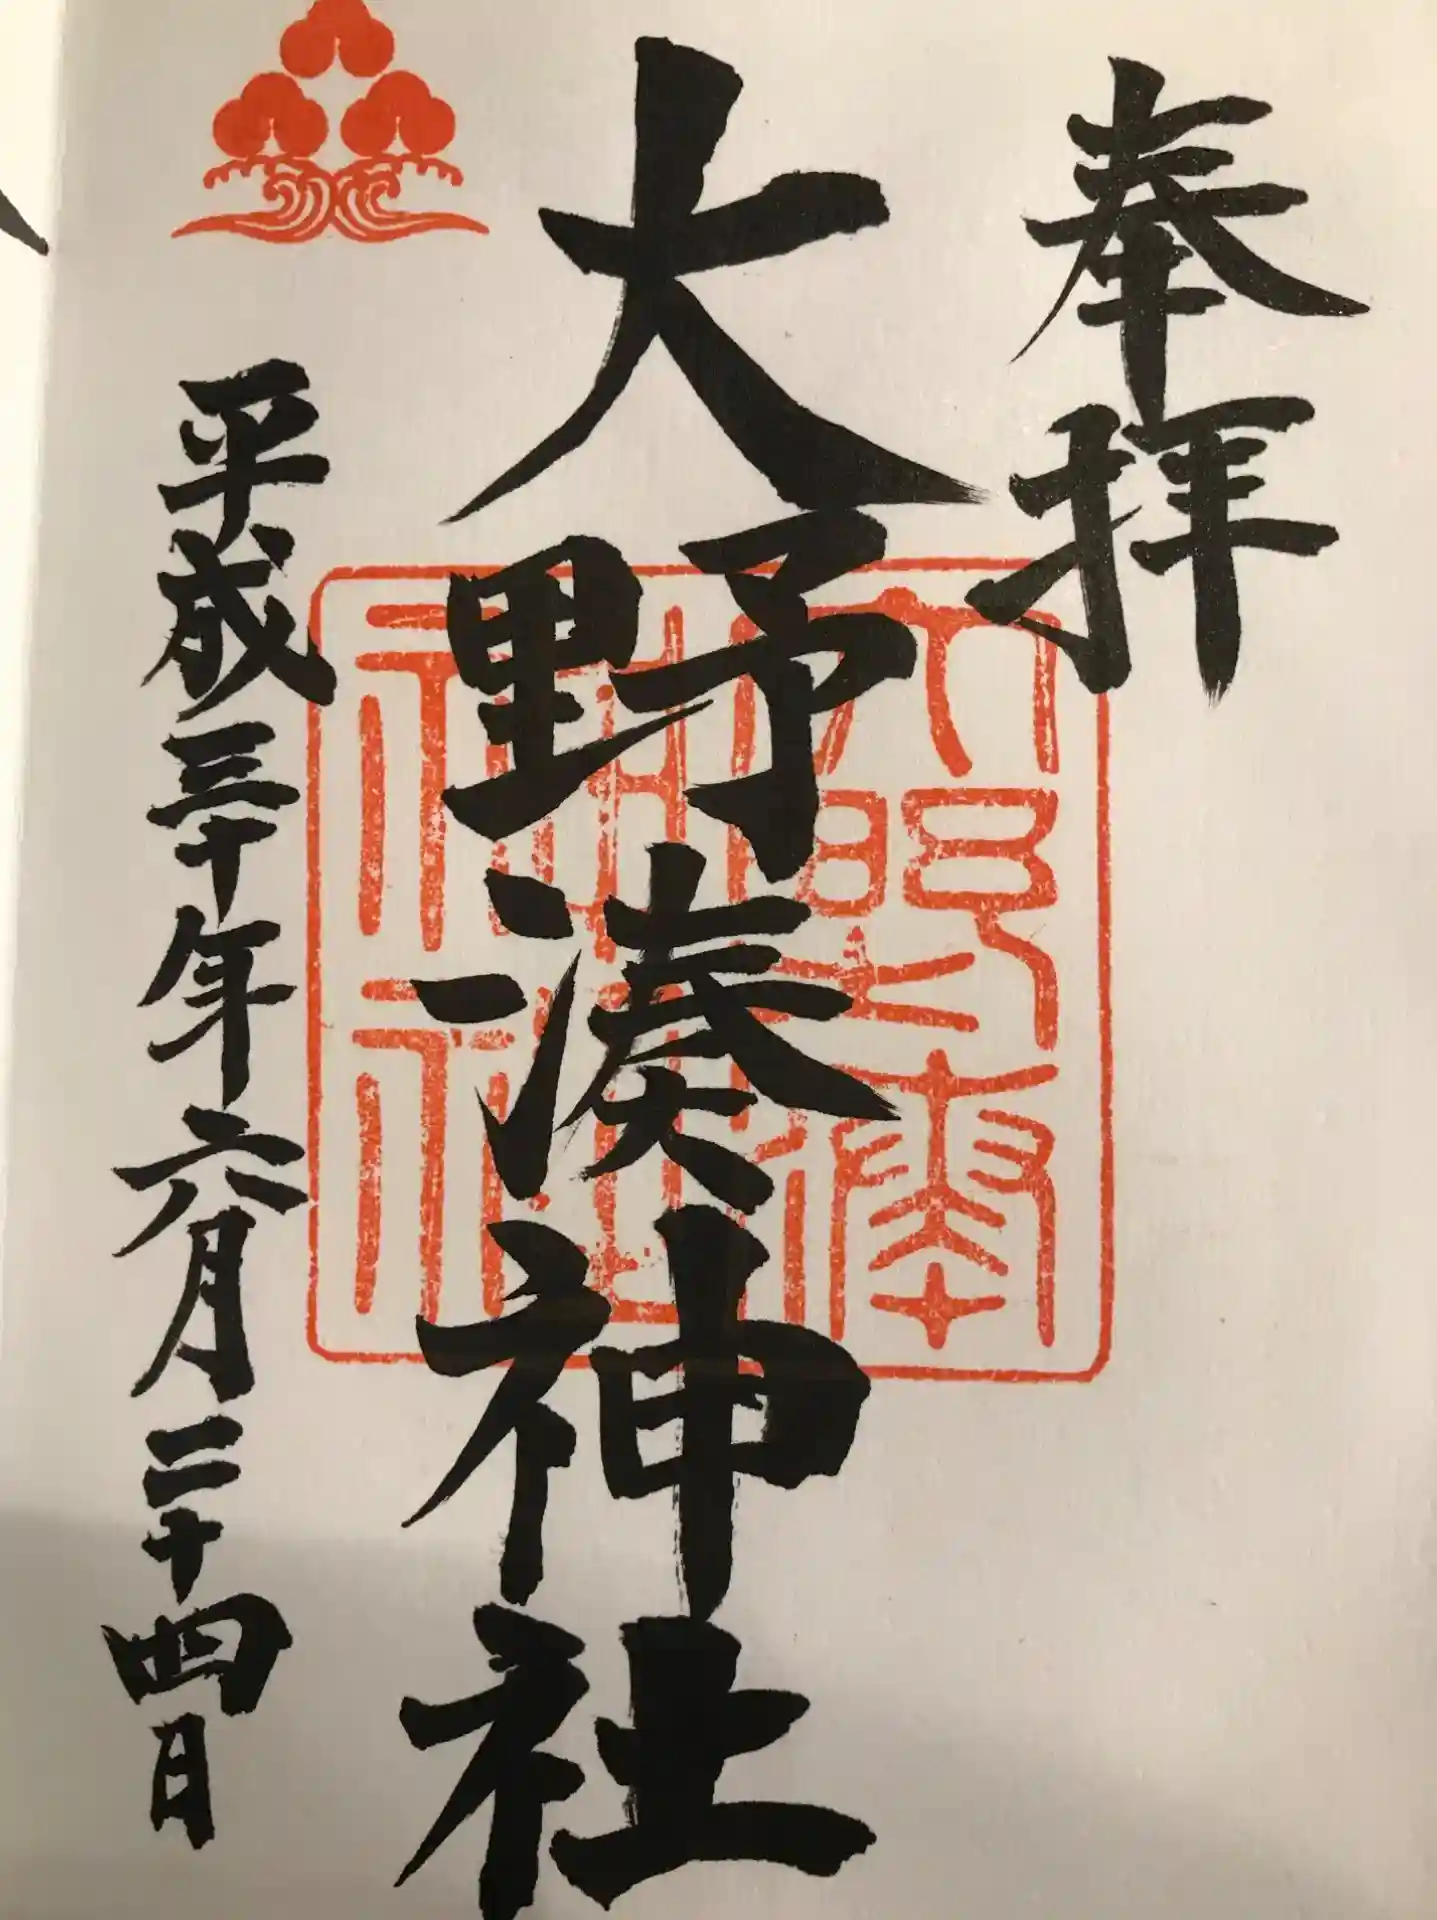 奉拝
大野湊神社
大野湊神社
平成三十年六月二十四日